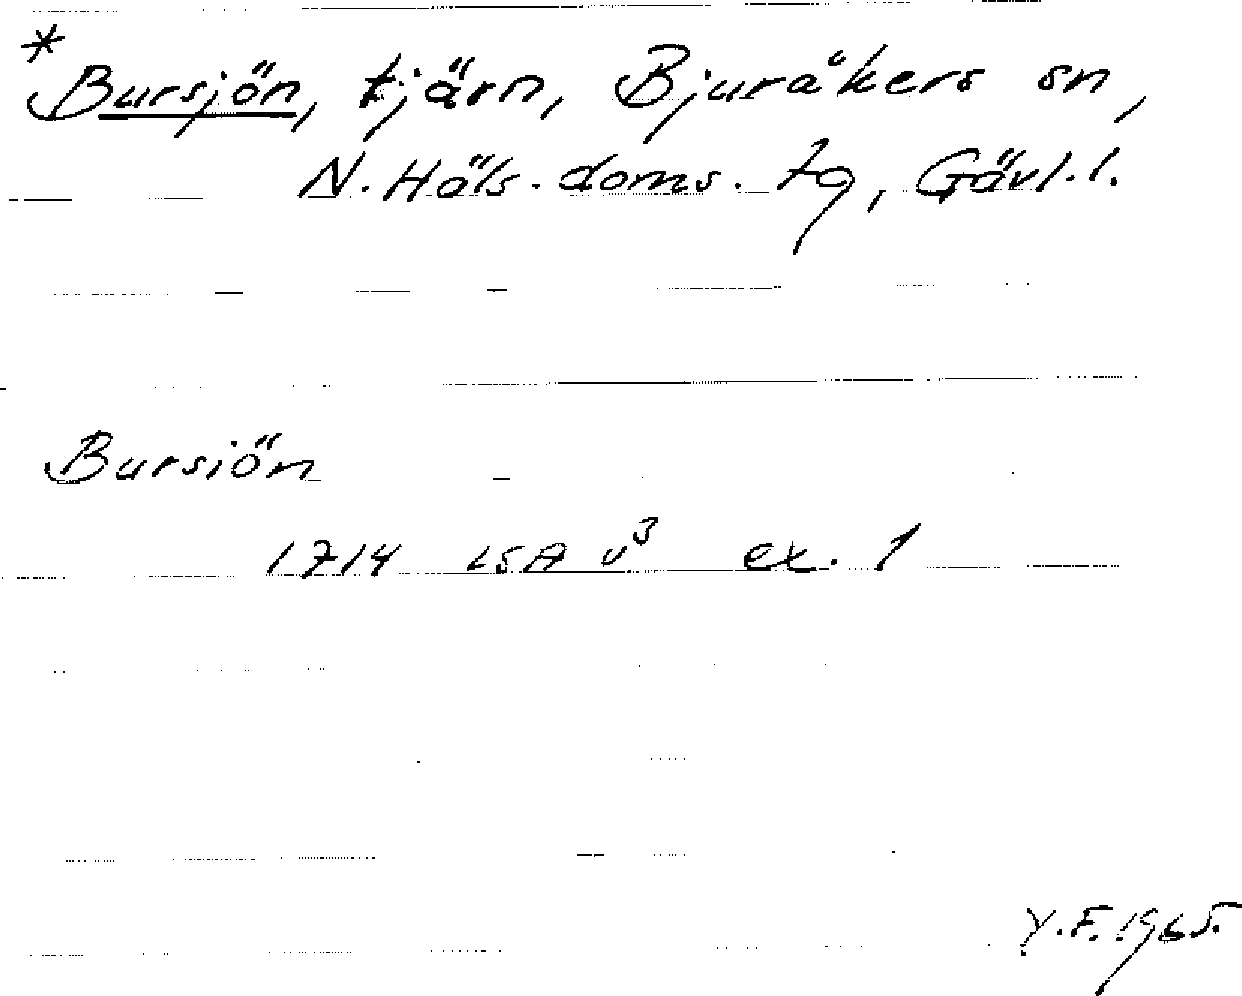 *Bursjön, tjärn, Bjuråkers sn,
N. Häls. doms. tg, Gävl. l.
Bursiön
1714 LSA v³ ex. 1
Y.F. 1965.